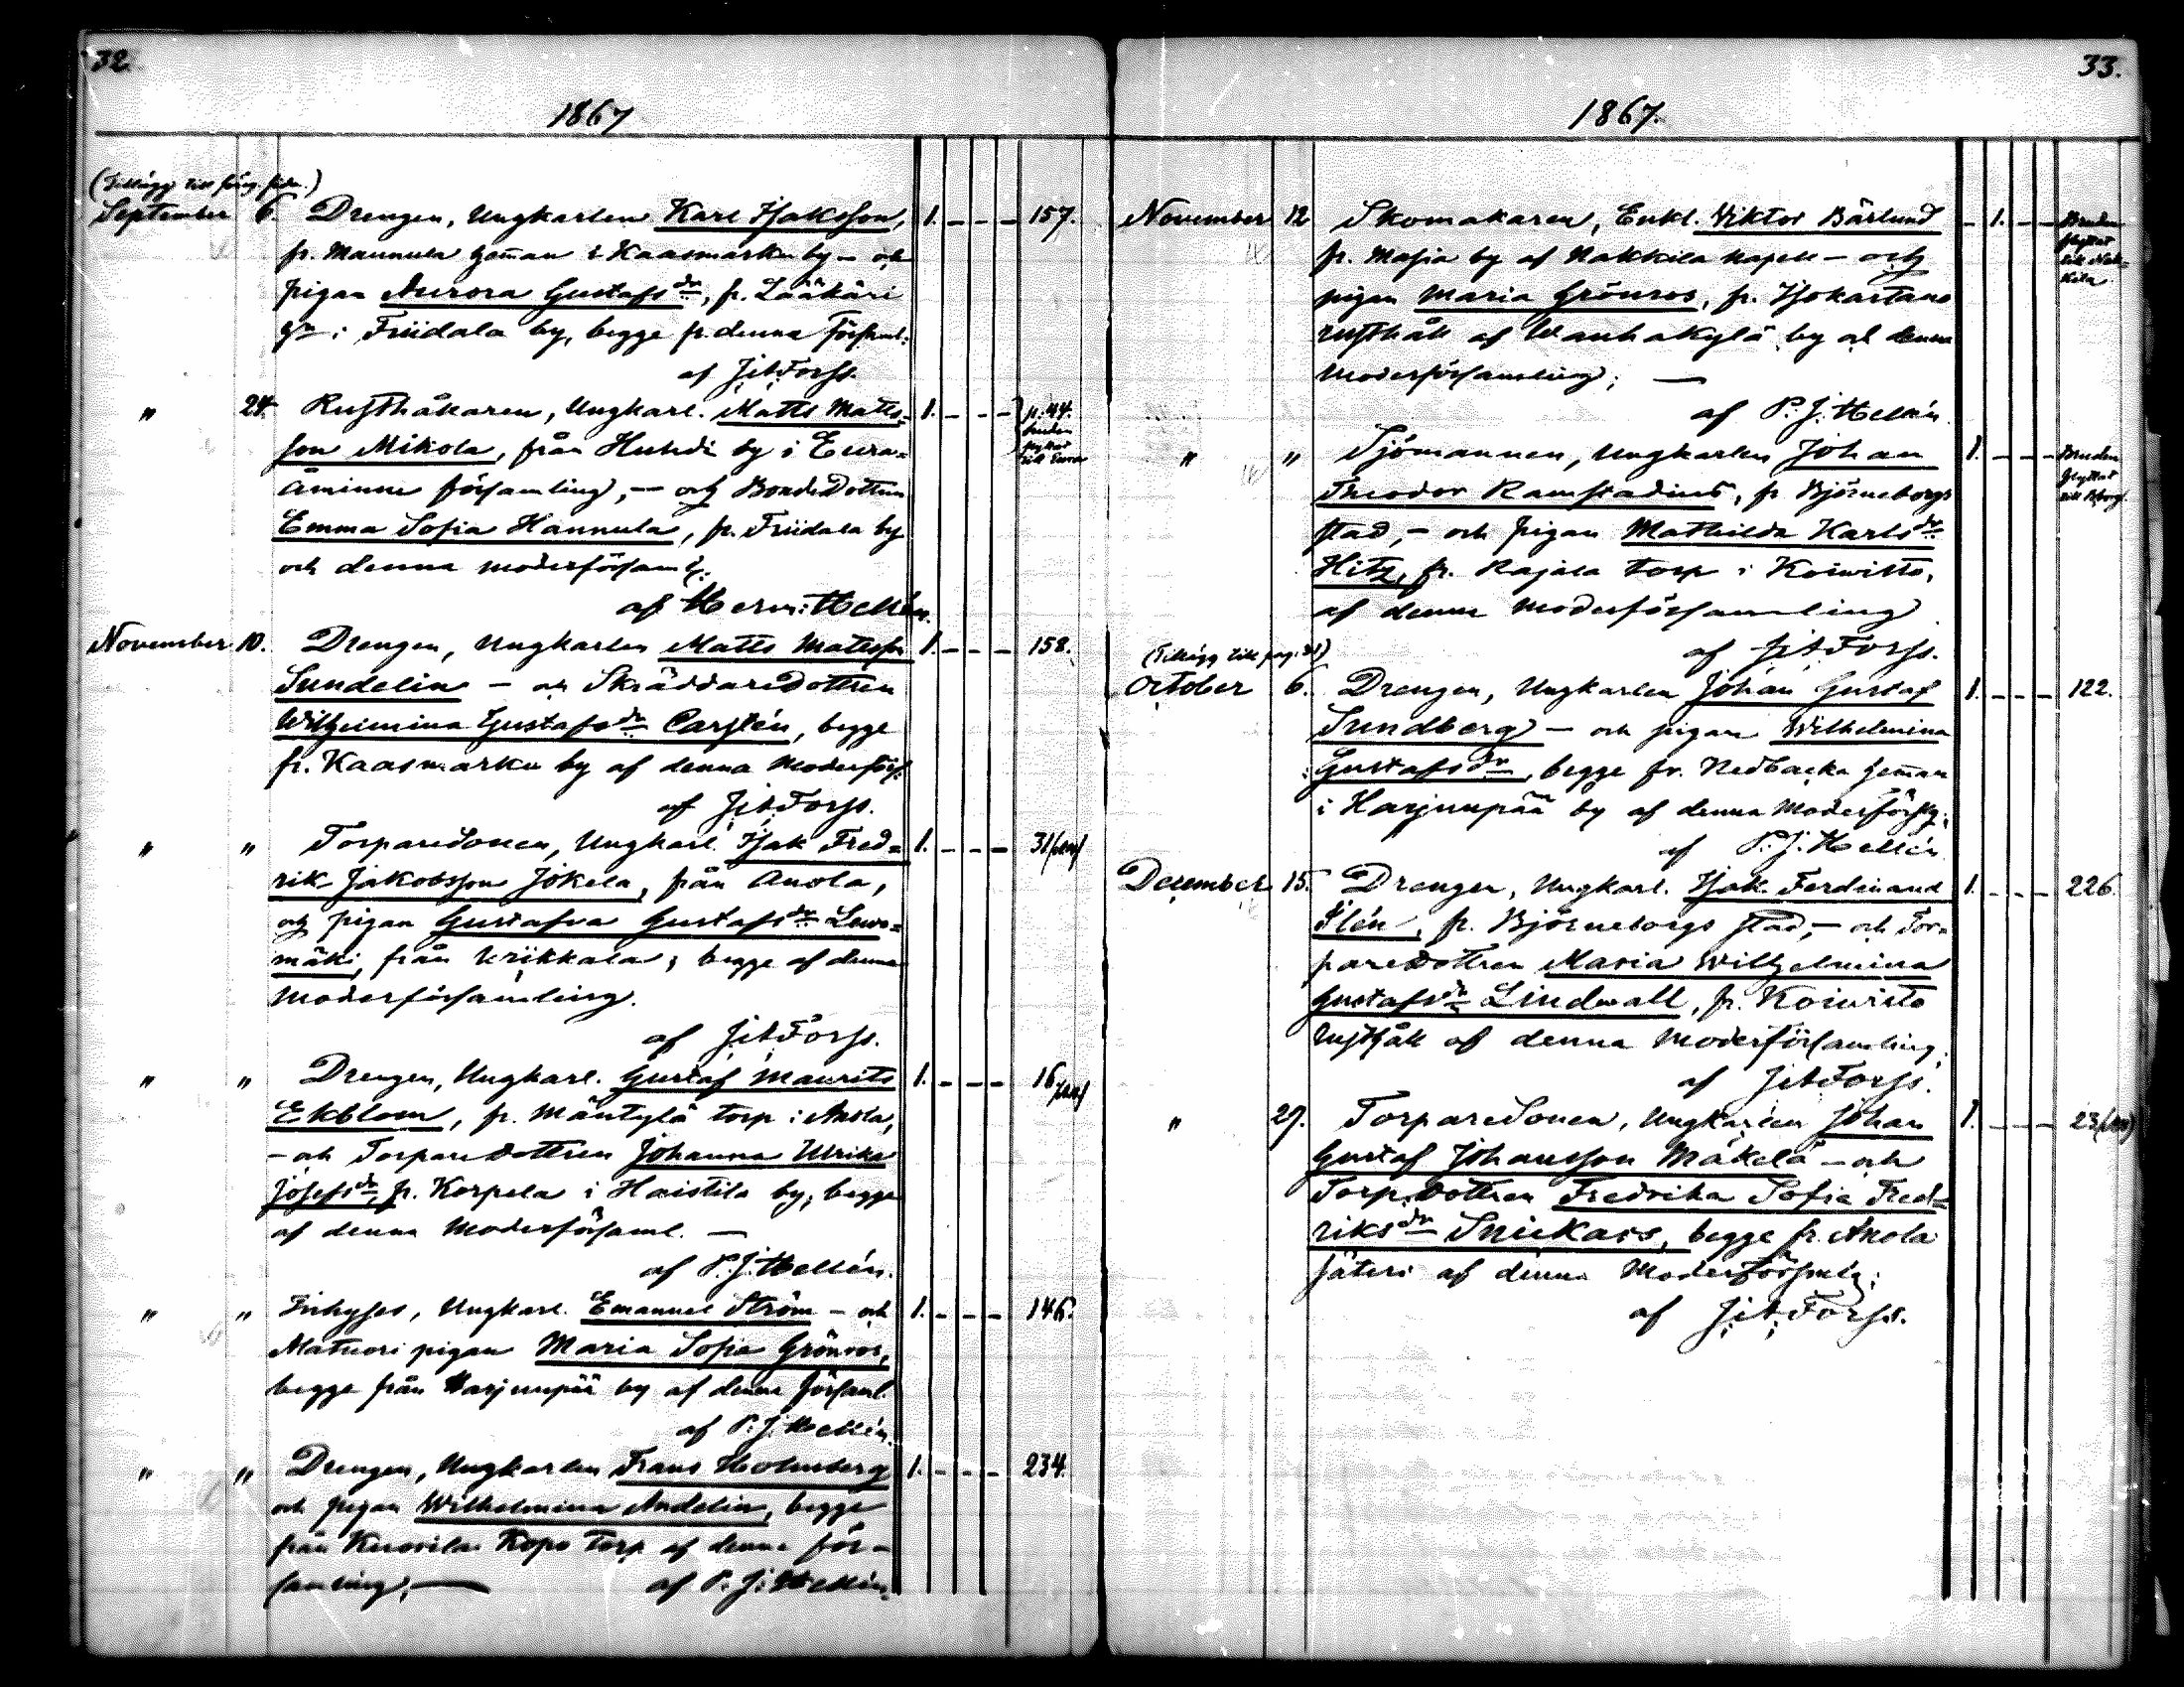 32.
1867
(Tillägg till föreg. sida.)
September 6. Drengen, Ungkarlen Karl Isaksson, 1. – – – 157.
fr. Mannula heman i Kaasmarku by – och
pigan Aurora Gustafsdr, fr. Lääkäri
gn i Friidala by, begge fr. denna församl.
af J. A. Forss.
" 24. Rusthållaren, Ungkarl. Matts Matts- 1. – – – p. 44.
son Mikola, från Huhdi by i Eura- bruden flyttat till Eura
åminne församling, – och Bondedottren
Emma Sofia Hannula, fr. Friidala by
och denna moderförsaml.
af Herm: Hellén.
November 10. Drengen, Ungkarlen Matts Mattsson 1. – – – 158.
Sundelin – och Skräddaredottren
Wilhelmina Gustafsdr Carstén, begge
fr. Kaasmarku by af denna Moderförs.
af J. A. Forss.
" " Torparesonen, Ungkarl. Isak Fred- 1. – – – 31
rik Jakobsson Jokela, från Anola,
och pigan Gustafva Gustafsdr Lewo-
mäki, från Krikkala, begge af denna
Moderförsamling.
af J. A. Forss.
" " Drengen, Ungkarl. Gustaf Maurits 1. – – – 16
Ekblom, fr. Mäntylä torp i Anola,
– och Torparedottren Johanna Ulrika
Josefsdr, fr. Korpela i Haistila by, begge
af denna Moderförsaml. –
af P. J. Hellén.
" " Inhyses, Ungkarl. Emanuel Ström – och 1. – – – 146.
Matuori pigan Maria Sofia Grönroos,
begge från Harjunpää by af denna församl.
af P. J. Hellén.
" " Drengen, Ungkarlen Frans Holmberg 1. – – – 234.
och pigan Wilhelmina Andelin, begge
från Kopo torp af denna för-
samling, — af P. J. Hellén.
33.
1867.
November 12 Skomakaren, Enkl. Wiktor Bärlund – 1. – – Bruden
fr. Masia by af Nakkila kapell – och flyttat till Nak-
pigan Maria Grönroos, fr. Isokartano kila
rusthåll af Wanhakylä by och denna
Moderförsamling; —
af P. J. Hellén.
" " Sjömannen, Ungkarlen Johan 1. – – – Bruden
Theodor Ramstadius, fr. Björneborgs flyttat
stad, – och pigan Mathilda Karlsdr till B:borg.
Hitz, fr. Rajala torp i Koiwisto,
af denna Moderförsamling
af J. A. Forss.
(Tillägg till pag. 31)
October 6. Drengen, Ungkarlen Johan Gustaf 1. – – – 122.
Sundberg – och pigan Wilhelmina
Gustafsdr, begge fr. Nedbacka heman
i Harjunpää by af denna Moderförsg.
af P. J. Hellén
December 15. Drengen, Ungkarl. Isak Ferdinand 1. – – – 226.
Slén, fr. Björneborgs stad, – och Tor-
paredottren Maria Wilhelmina
Gustafsdr Lindwall, fr. Koiwisto
rusthåll af denna Moderförsamling.
af J. A. Forss.
" 27. Torparesonen, Ungkarlen Johan 1. – – – 23
Gustaf Johansson Mäkelä – och
Torp.dottren Fredrika Sofia Fred-
riksdr Snickars, begge fr. Anola
säteri af denna Moderförsmlg;
af J. A. Forss.